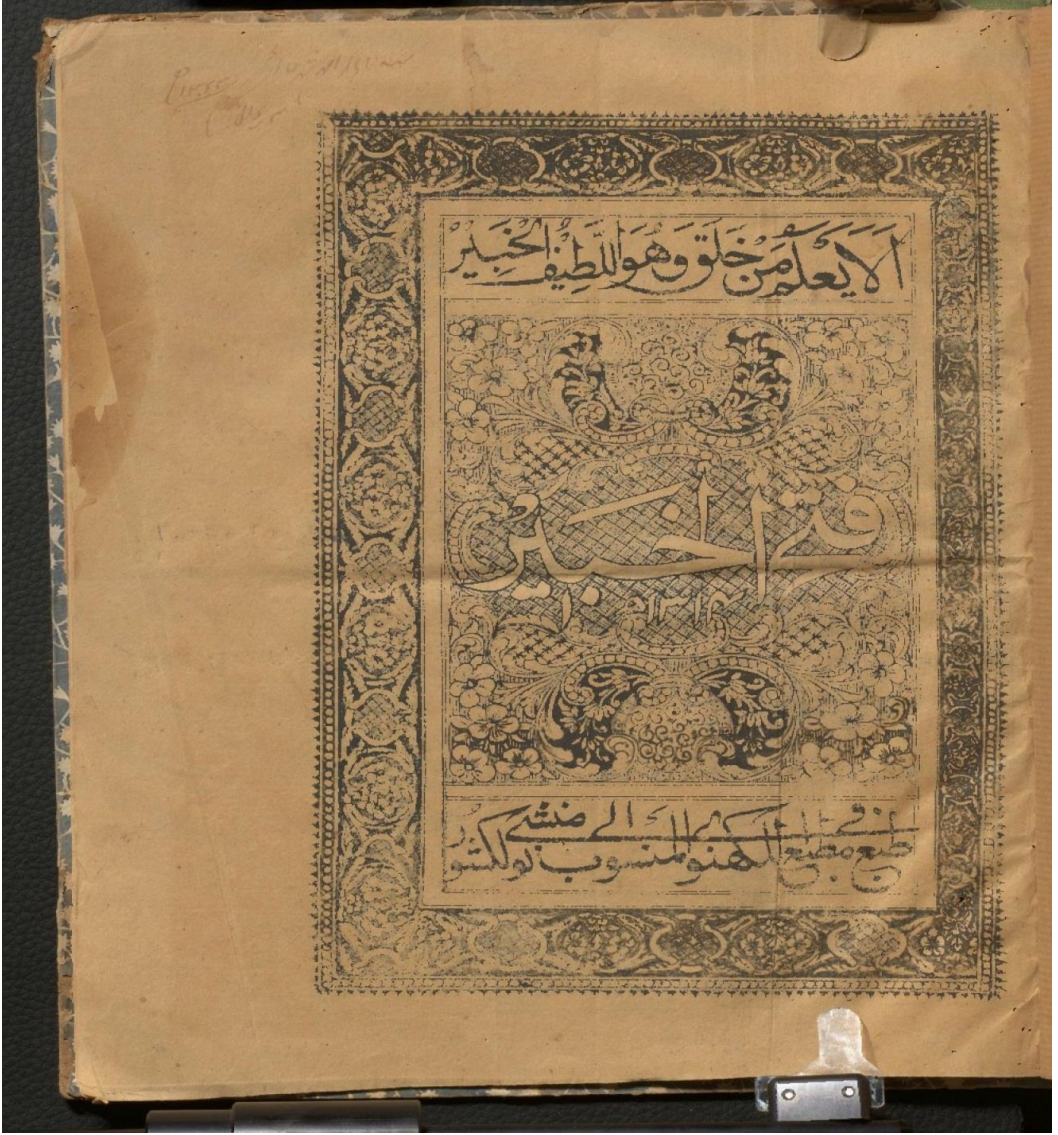 اَلَا يَعْلَمُ مَنْ خَلَقَ وَهُوَ اللَّطِيْفُ الْخَبِيْرُ
فتح الخبير
طبع في مطبع لكهنو المنسوب الى منشى نولكشور